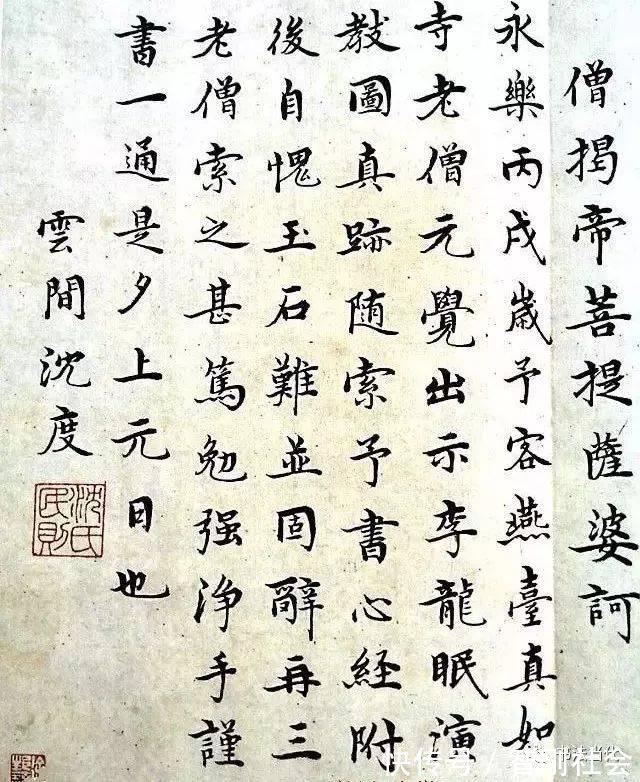 僧揭帝菩提薩婆訶
永樂丙戌歲予客燕臺真如
寺老僧元覺出示李龍眠演
教圖真跡随索予書心経附
後自愧玉石難並固辭再三
老僧索之甚篤勉强浄手謹
書一通是夕上元日也
雲間沈度
沈氏民則
快传号 /